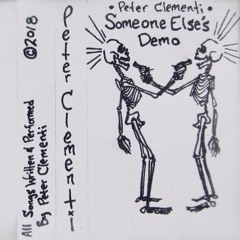 ©2018
All Songs Written & Performed
By Peter Clementi
Peter Clementi
• Peter Clementi •
Someone Else's
Demo